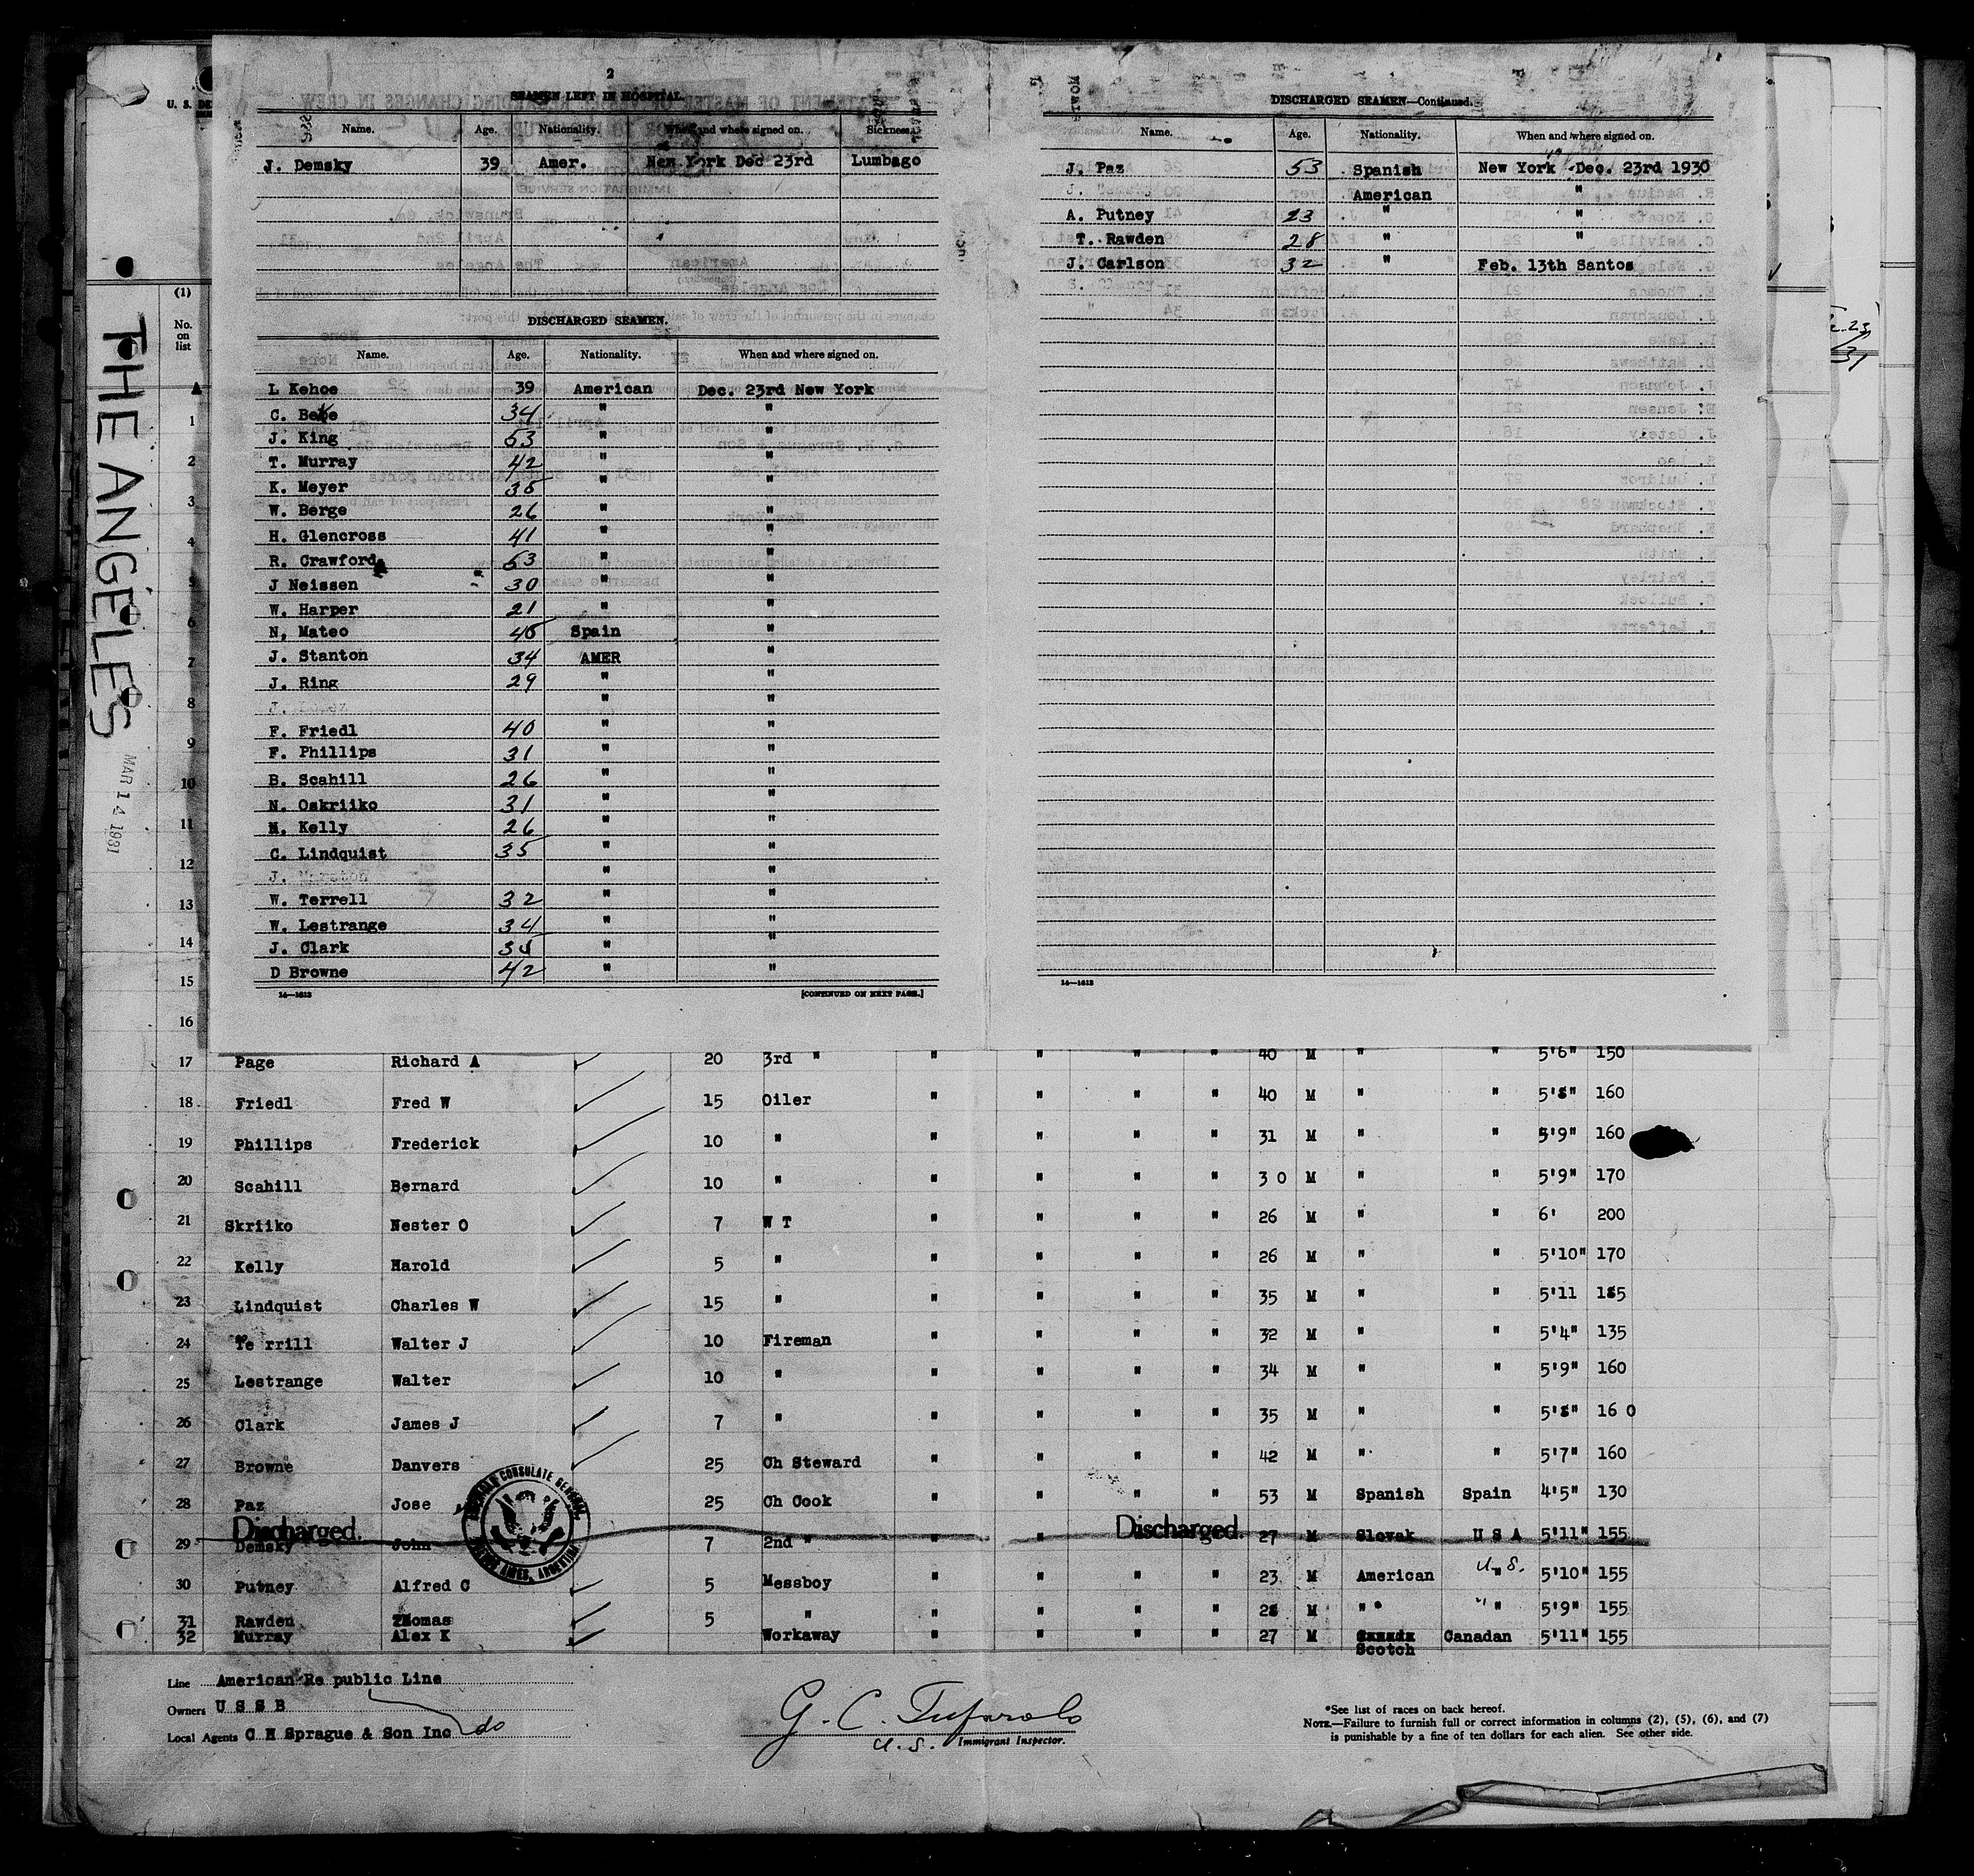 U. S. DE
THE ANGELES
MAR 14 1931
2
SEAMEN LEFT IN HOSPITAL.
Name. Age. Nationality. When and where signed on. Sickness.
J. Demsky 39 Amer. New York Dec 23rd Lumbago
DISCHARGED SEAMEN.
Name. Age. Nationality. When and where signed on.
L Kehoe 39 American Dec. 23rd New York
C. 34 " "
J. King 53 " "
T. Murray 42 " "
K. Meyer 35 " "
W. Berge 26 " "
H. Glencross 41 " "
R. Crawford 53 " "
J Neissen 30 " "
W. Harper 21 " "
N, Mateo 45 Spain "
J. Stanton 34 AMER "
J. Ring 29 " "
J. " "
F. Friedl 40 " "
F. Phillips 31 " "
B. Scahill 26 " "
N. Oskriiko 31 " "
Kelly 26 " "
C. Lindquist 35 " "
J. " "
W. Terrell 32 " "
W. Lestrange 34 " "
J. Clark 35 " "
D Browne 42 " "
14—1612 [CONTINUED ON NEXT PAGE.]
DISCHARGED SEAMEN—Continued.
Name. Age. Nationality. When and where signed on.
J. Paz 53 Spanish New York Dec. 23rd 1930
American "
A. Putney 23 " "
T. Rawden 28 " "
J. Carlson 32 " Feb. 13th Santos
14—1612
(1)
No. on list
1
2
3
4
5
6
7
8
9
10
11
12
13
14
15
16
17 Page Richard A 20 3rd " " " " " 40 M " " 5'6" 150
18 Friedl Fred W 15 Oiler " " " " 40 M " " 5'8" 160
19 Phillips Frederick 10 " " " " " 31 M " " 5'9" 160
20 Scahill Bernard 10 " " " " " 3 0 M " " 5'9" 170
21 Skriiko Nester O 7 W T " " " " 26 M " " 6' 200
22 Kelly Harold 5 " " " " " 26 M " " 5'10" 170
23 Lindquist Charles W 15 " " " " " 35 M " " 5'11 185
24 Te rrill Walter J 10 Fireman " " " " 32 M " " 5'4" 135
25 Lestrange Walter 10 " " " " " 34 M " " 5'9" 160
26 Clark James J 7 " " " " " 35 M " " 5'8" 16 0
27 Browne Danvers 25 Ch Steward " " " " 42 M " " 5'7" 160
28 Paz Jose 25 Ch Cook " " " " 53 M Spanish Spain 4'5" 130
Discharged. Discharged.
29 Demsky John 7 2nd " " " 27 M Slovak U S A 5'11" 155
30 Putney Alfred C 5 Messboy " " " " 23 M American U.S. 5'10" 155
31 Rawden Thomas 5 " " " " " 28 M " " 5'9" 155
32 Murray Alex K Workaway " " " " 27 M Canadan 5'11" 155
Scotch
AMERICAN CONSULATE GENERAL, BUENOS AIRES, ARGENTINA
Line American Re public Line
Owners U S S B
Local Agents C H Sprague & Son Inc do
G. C. Tufarolo
U.S. Immigrant Inspector.
*See list of races on back hereof.
NOTE.—Failure to furnish full or correct information in columns (2), (5), (6), and (7)
is punishable by a fine of ten dollars for each alien. See other side.